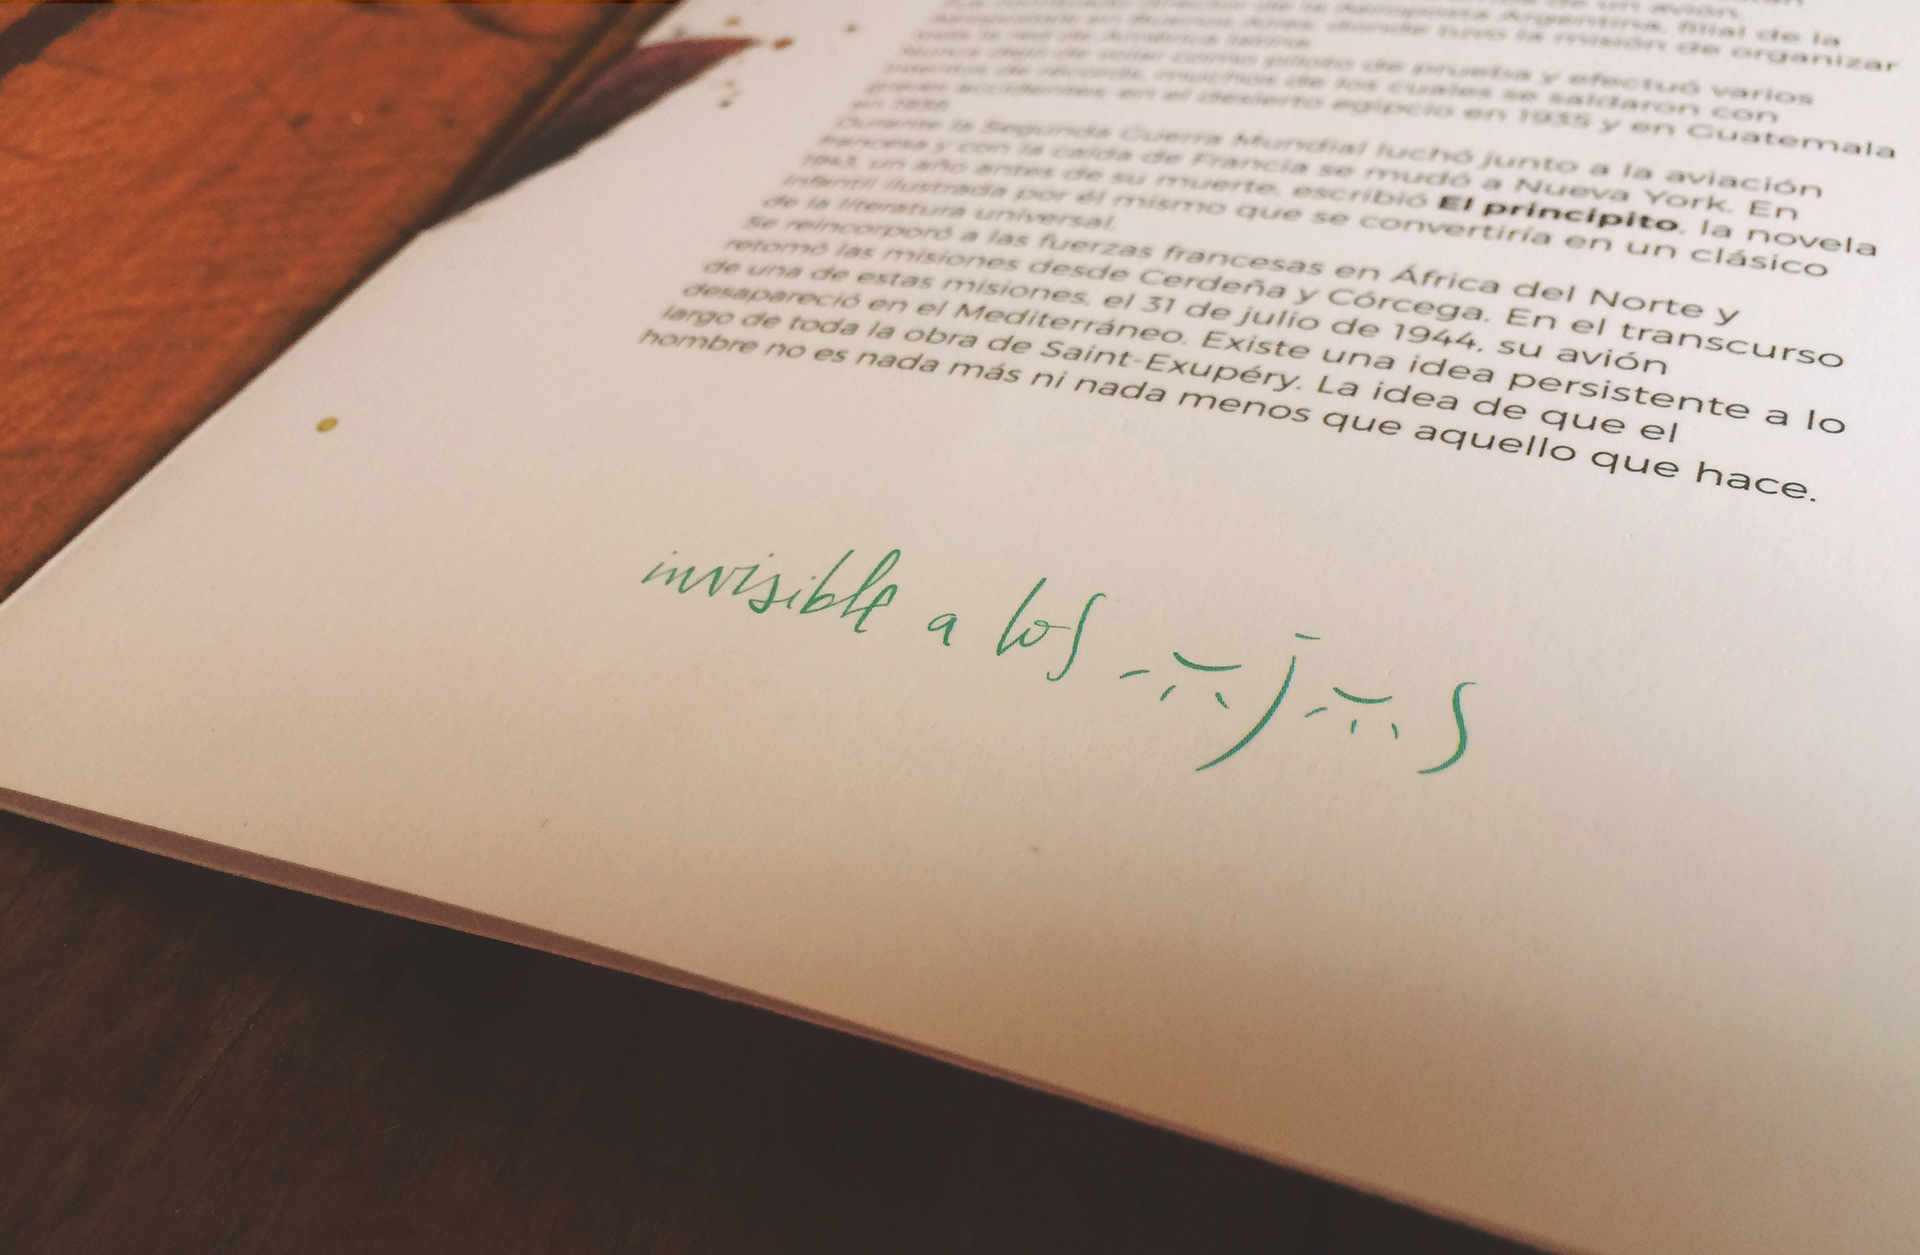 de un avión,
Aeroposta Argentina, filial de la
Aeropostale en Buenos Aires, donde tuvo la misión de organizar
toda la red de América latina.
Nunca dejó de volar como piloto de prueba y efectuó varios
intentos de récords, muchos de los cuales se saldaron con
graves accidentes: en el desierto egipcio en 1935 y en Guatemala
en 1938.
Durante la Segunda Guerra Mundial luchó junto a la aviación
francesa y con la caída de Francia se mudó a Nueva York. En
1943, un año antes de su muerte, escribió El principito, la novela
infantil ilustrada por él mismo que se convertiría en un clásico
de la literatura universal.
Se reincorporó a las fuerzas francesas en África del Norte y
retomó las misiones desde Cerdeña y Córcega. En el transcurso
de una de estas misiones, el 31 de julio de 1944, su avión
desapareció en el Mediterráneo. Existe una idea persistente a lo
largo de toda la obra de Saint-Exupéry. La idea de que el
hombre no es nada más ni nada menos que aquello que hace.
invisible a los j s